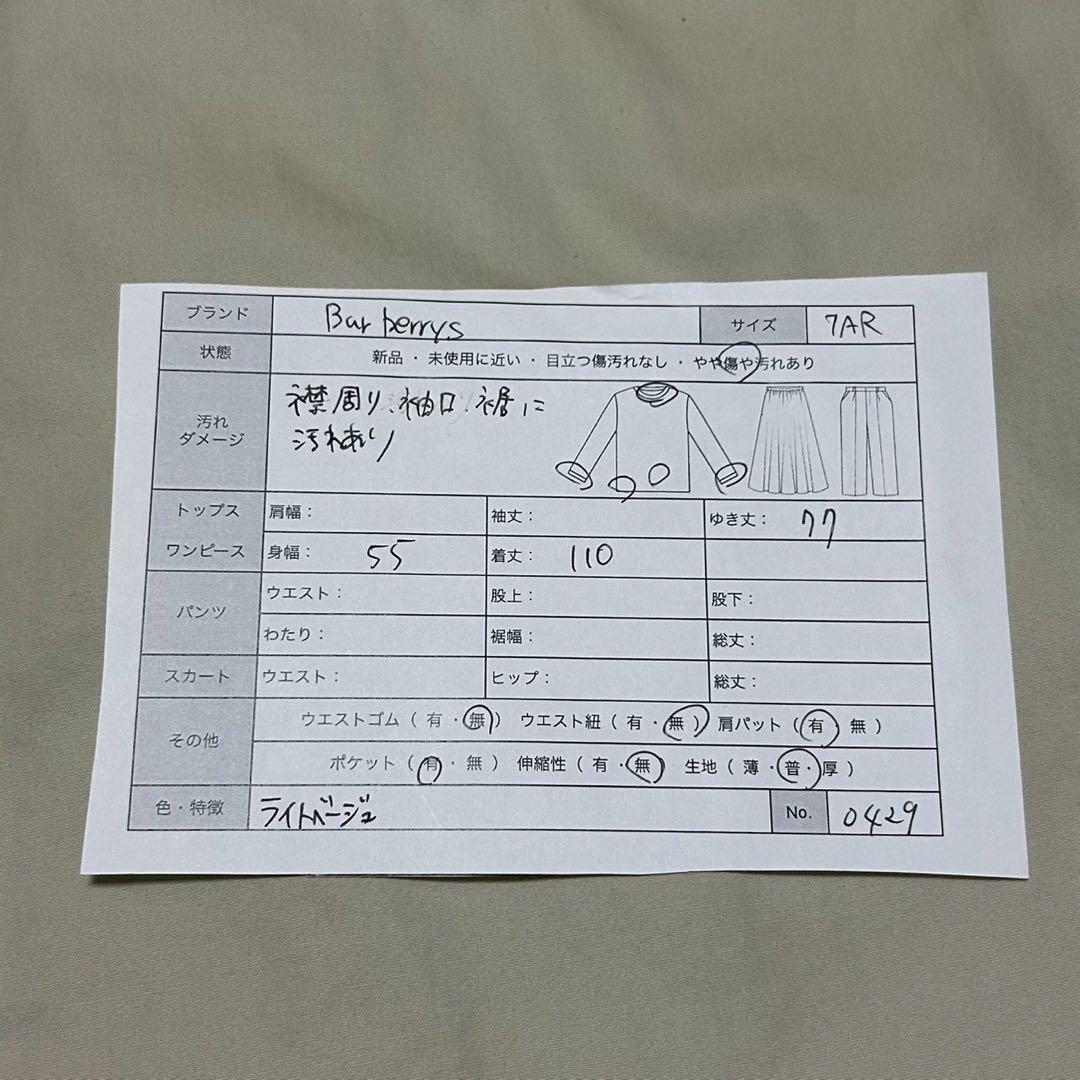 ブランド Barberrys サイズ 7AR
状態 新品・未使用に近い・目立つ傷汚れなし・やや傷や汚れあり
汚れ
ダメージ
襟周り、袖口、裾に
汚れあり
トップス 肩幅： 袖丈： ゆき丈： 77
ワンピース 身幅： 55 着丈： 110
パンツ ウエスト： 股上： 股下：
わたり： 裾幅： 総丈：
スカート ウエスト： ヒップ： 総丈：
その他 ウエストゴム（有・無） ウエスト紐（有・無） 肩パット（有 無）
ポケット（有・無） 伸縮性（有・無） 生地（薄・普・厚）
色・特徴 ライトベージュ No. 0429